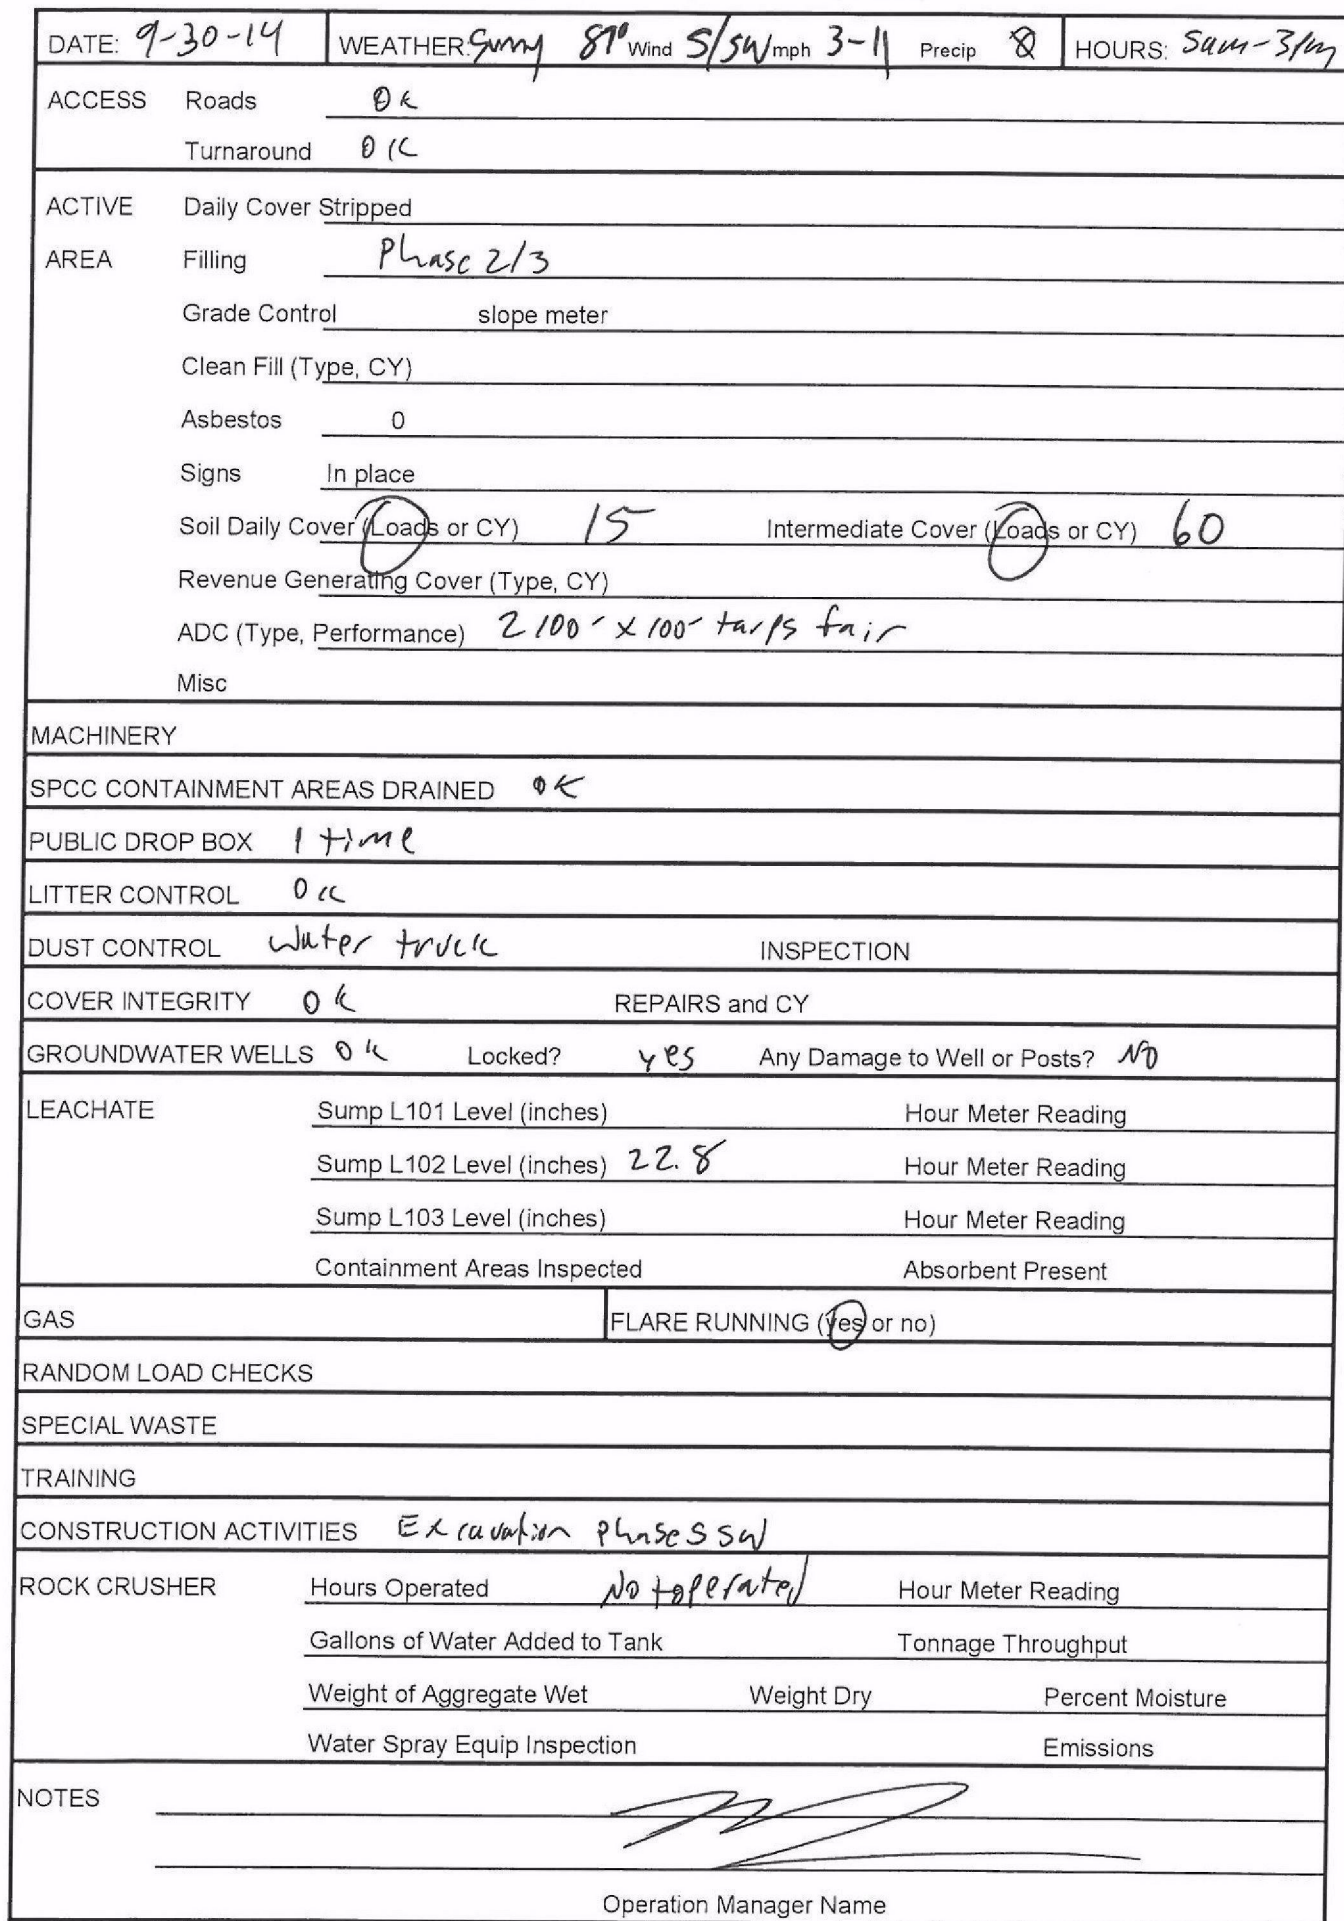 DATE: 9-30-14 WEATHER: Sunny 81° Wind S/SW mph 3-11 Precip 0 HOURS: 5am-3pm
ACCESS Roads OK
Turnaround OK
ACTIVE Daily Cover Stripped
AREA Filling Phase 2/3
Grade Control slope meter
Clean Fill (Type, CY)
Asbestos 0
Signs In place
Soil Daily Cover (Loads or CY) 15 Intermediate Cover (Loads or CY) 60
Revenue Generating Cover (Type, CY)
ADC (Type, Performance) 2 100' x 100' tarps fair
Misc
MACHINERY
SPCC CONTAINMENT AREAS DRAINED OK
PUBLIC DROP BOX 1 time
LITTER CONTROL OK
DUST CONTROL Water truck INSPECTION
COVER INTEGRITY OK REPAIRS and CY
GROUNDWATER WELLS OK Locked? yes Any Damage to Well or Posts? NO
LEACHATE Sump L101 Level (inches) Hour Meter Reading
Sump L102 Level (inches) 22.8 Hour Meter Reading
Sump L103 Level (inches) Hour Meter Reading
Containment Areas Inspected Absorbent Present
GAS FLARE RUNNING (yes or no)
RANDOM LOAD CHECKS
SPECIAL WASTE
TRAINING
CONSTRUCTION ACTIVITIES Excavation Phase 5 SW
ROCK CRUSHER Hours Operated Not operated Hour Meter Reading
Gallons of Water Added to Tank Tonnage Throughput
Weight of Aggregate Wet Weight Dry Percent Moisture
Water Spray Equip Inspection Emissions
NOTES
Operation Manager Name